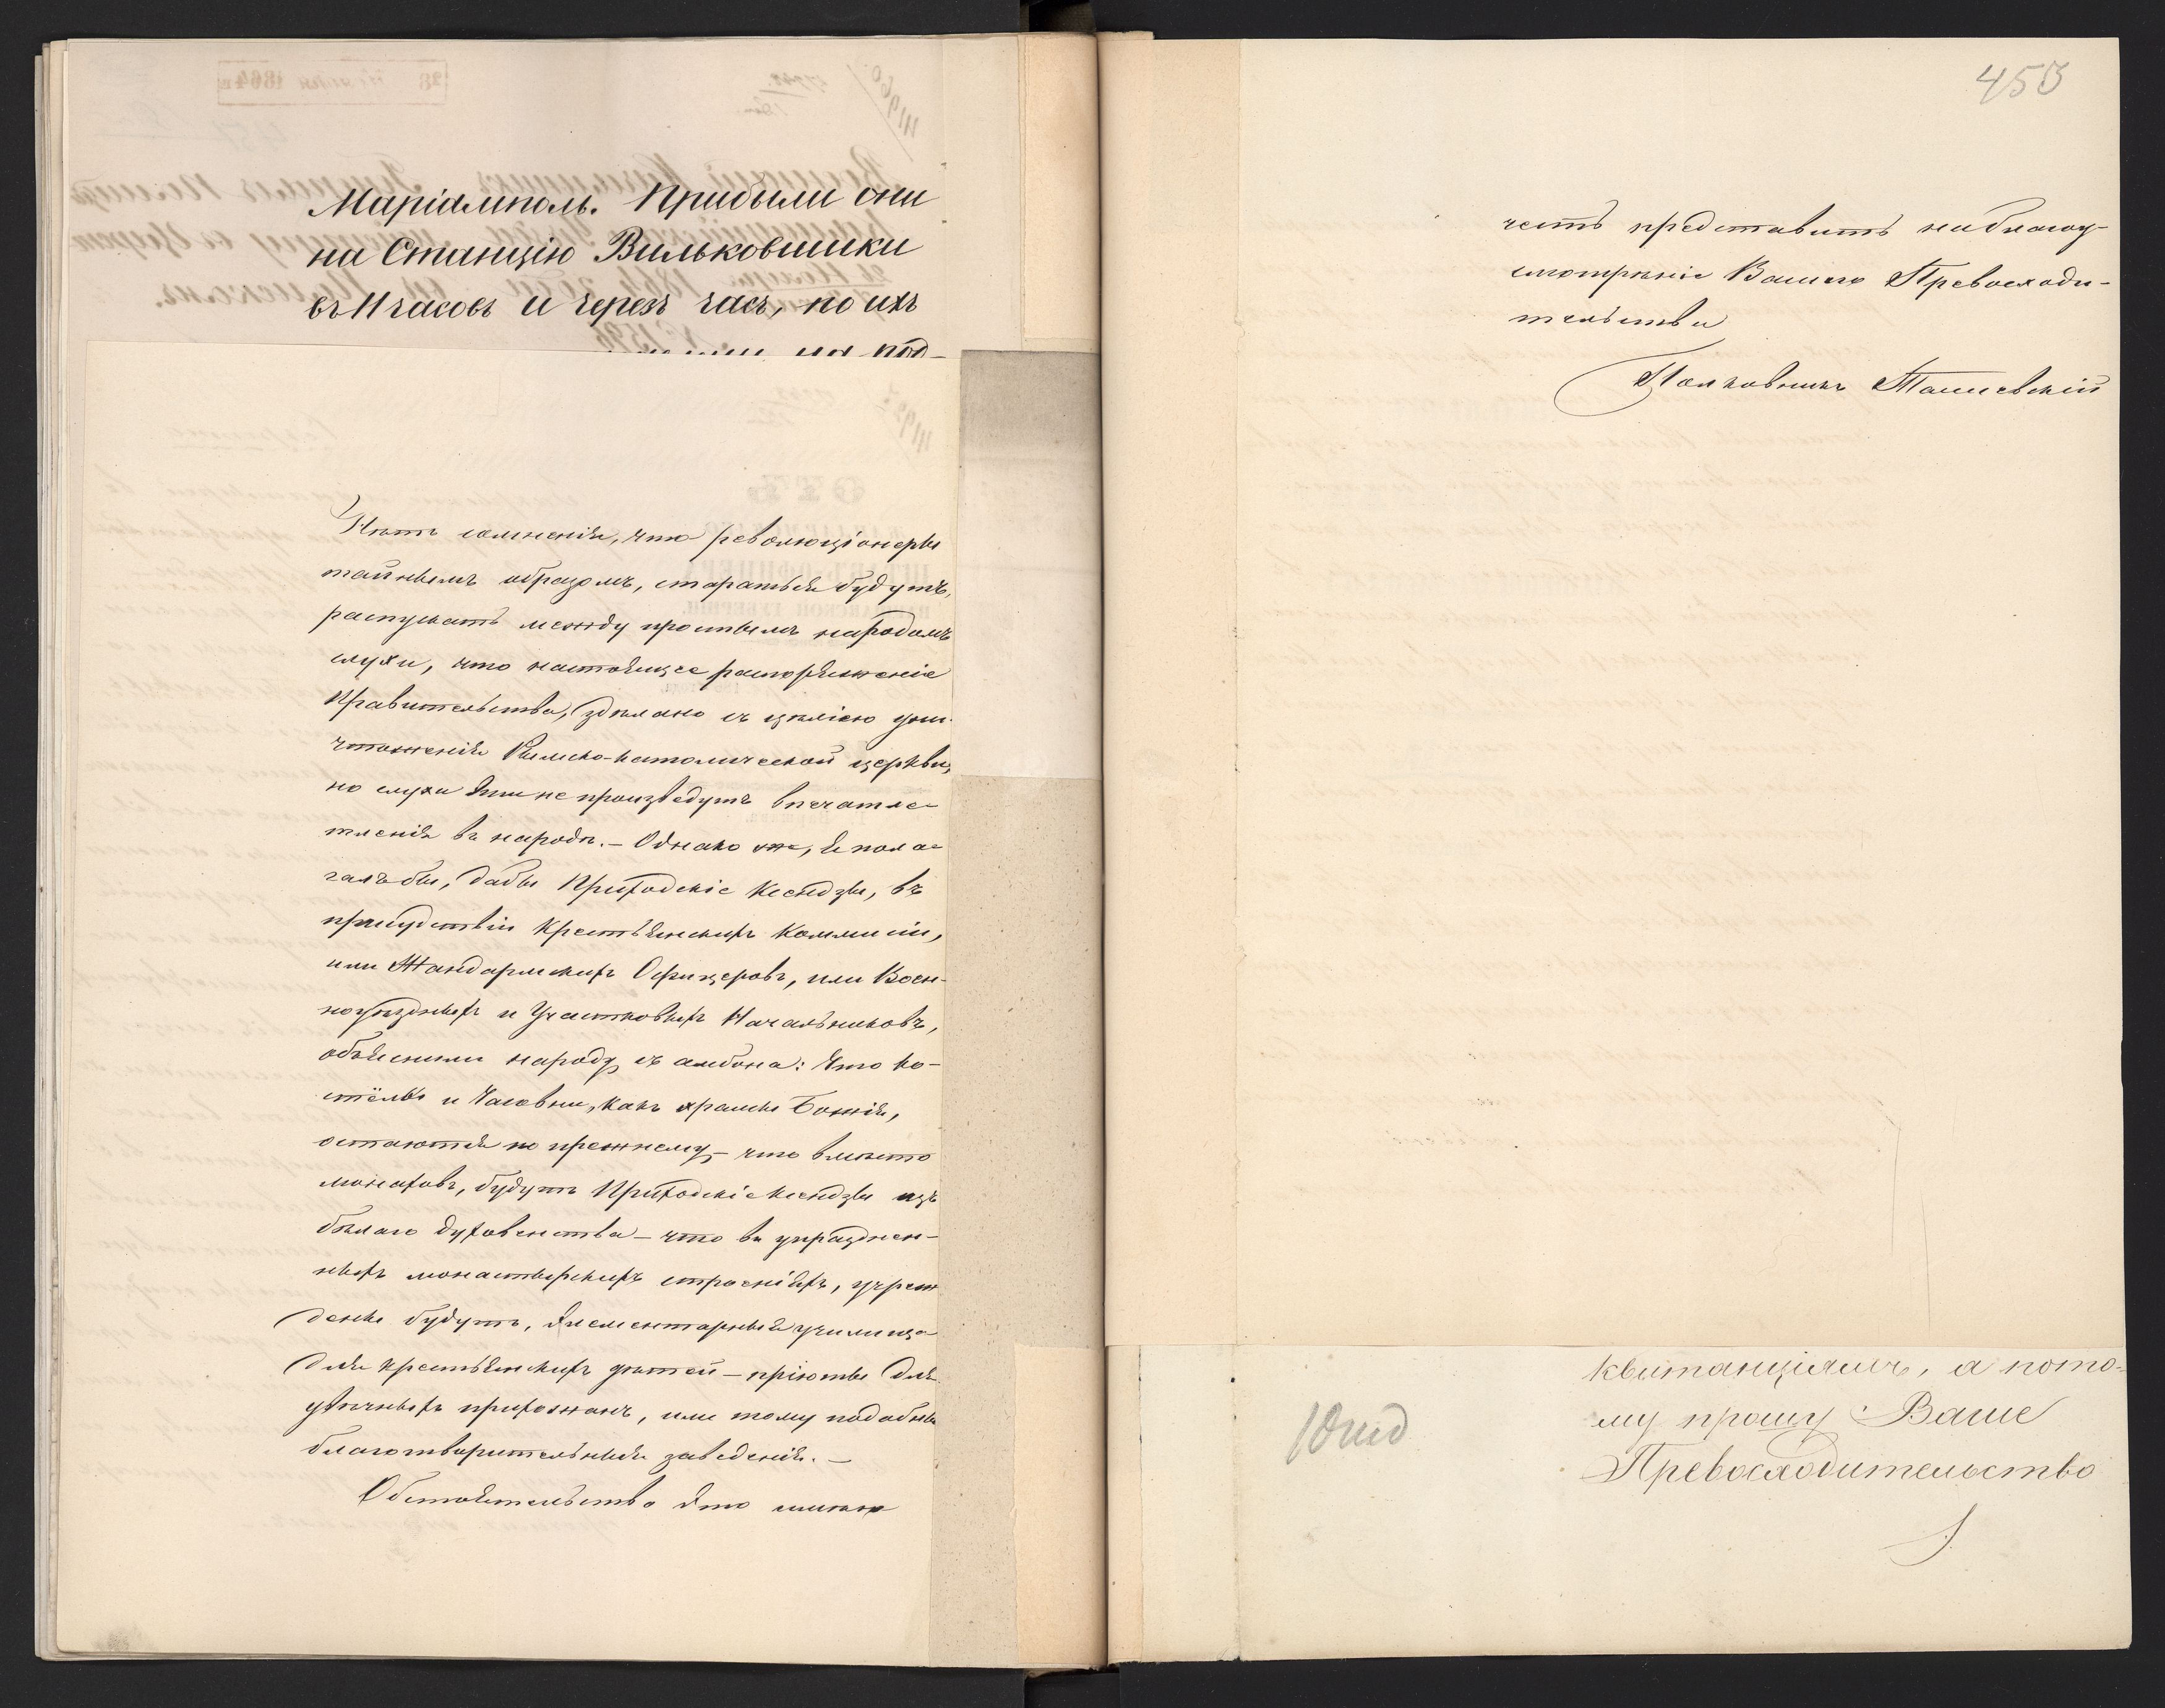 Маріамполь. Прибыли они
на Станцію Вильковишки
въ 11 часовъ и черезъ часъ, по ихъ
на под-
Нѣтъ сомненія, что революціонеры
тайнымъ образомъ, стараться будутъ,
распускать между простымъ народомъ
слухи, что настоящее распоряженіе
Правительства, здѣлано съ цѣлію уни-
чтоженія Римско-католической церкви,
но слухи эти не произведутъ впечатле-
тленія въ народѣ. – Однако же, я пола-
галъ бы, дабы Приходскіе Ксендзы, въ
присудствіи Крестьянскихъ Коммисіи,
или Жандармскихъ Офицеровъ, или Воен-
ноуѣздныхъ и Участковыхъ Начальниковъ,
объяснили народу съ амвона: Что ко-
стёлы и Часовни, какъ храмы Божія,
остаются по прежнему – что вмѣсто
монаховъ, будутъ Приходскіе Ксендзы изъ
бѣлаго духовенства – что въ упразднен-
ныхъ монастырскихъ строеніяхъ, учреж
дены будутъ, элементарныя училища
для крестьянскихъ дѣтей – пріюты для
увѣчныхъ прихожанъ, или тому подобныя
благотворительныя заведенія. –
Обстоятельство это имѣю
453
честь представить на благоу-
смотрѣніе Вашего Превосходи-
тельства
Полковникъ Ташевскій
квитанціямъ, а пото-
му прошу Ваше
Превосходительство